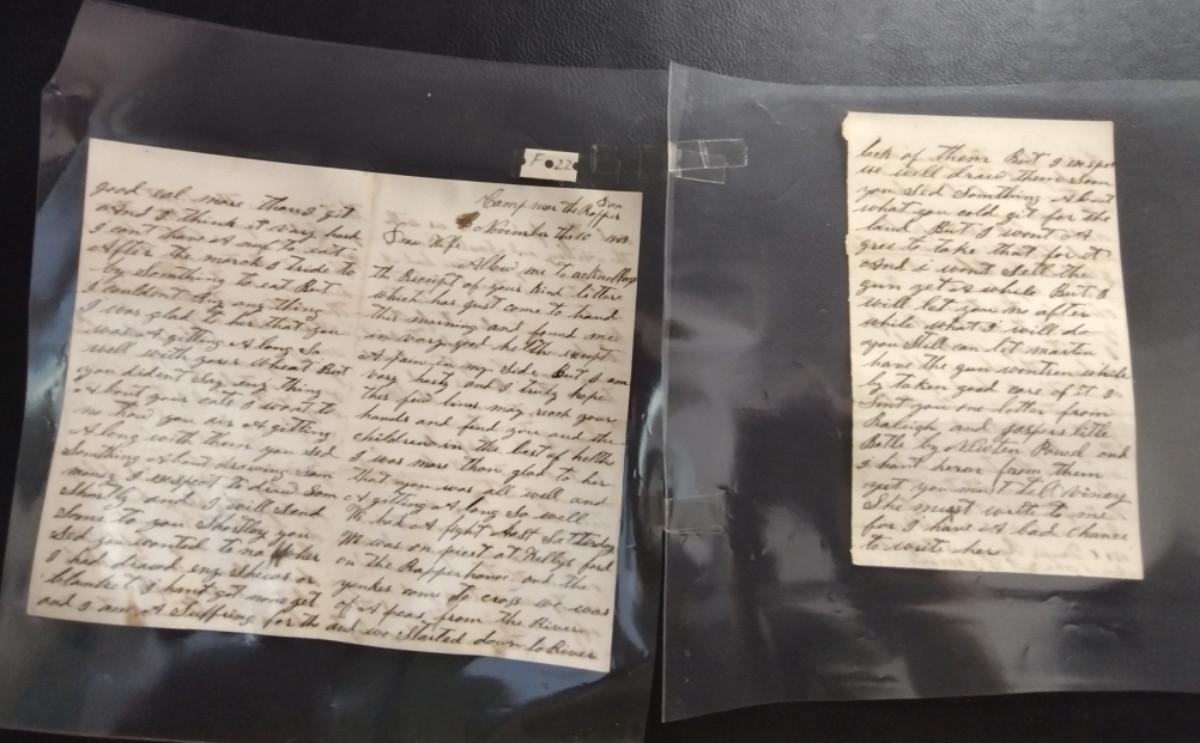 F 22
Camp near the Rapper Dan
November the 10 1863
Dear Wife
Allow me to acknollage
the Receipt of your kind letter
which has just come to hand
this morning and found me
in very good helth except
A pain in my side But I am
very harty and I truly hope
thes few lines may reach your
hands and find you and the
children in the best of helth
I was more than glad to her
that you was all well and
A gitting A long so well
We had A fight last Satterday
We was on picet at Kellys ford
on the Rapperhanoc and the
yankes come to cross we was
of A peas from the River
and we Started down to River
good eal more thans git
and I think it very hard
I can't have A nuf to eat
After the march I tride to
by Something to eat But
I couldent Buy any thing
I was glad to her that you
was A gitting A long So
well with your wheat But
you dident Say eny thing
A bout your oats I want to
no how you air A gitting
A long with them you Sed
Something A bout drawing Som
money I exspect to draw Som
Shortly and I will Send
Some to you Shortley you
Sed you wanted to no whether
I had drawd eny Shews or
blanket i hant got none yet
and I am A Suffring for th
lack of them But I exspe
we will draw them Soon
you Sed Something About
what you cold git for the
land But I wont A
gree to take that for it
And i wont Sell the
gun yet A while But I
will let you no after
while what I will do
you Still can let martin
have the gun while
by taken good care of it I
Sent you one letter from
Raleigh and Jaspers little
Botle by Newten Powd and
i hant heren from them
yet you must tell vinery
She must write to me
for I have A bad chance
to write her